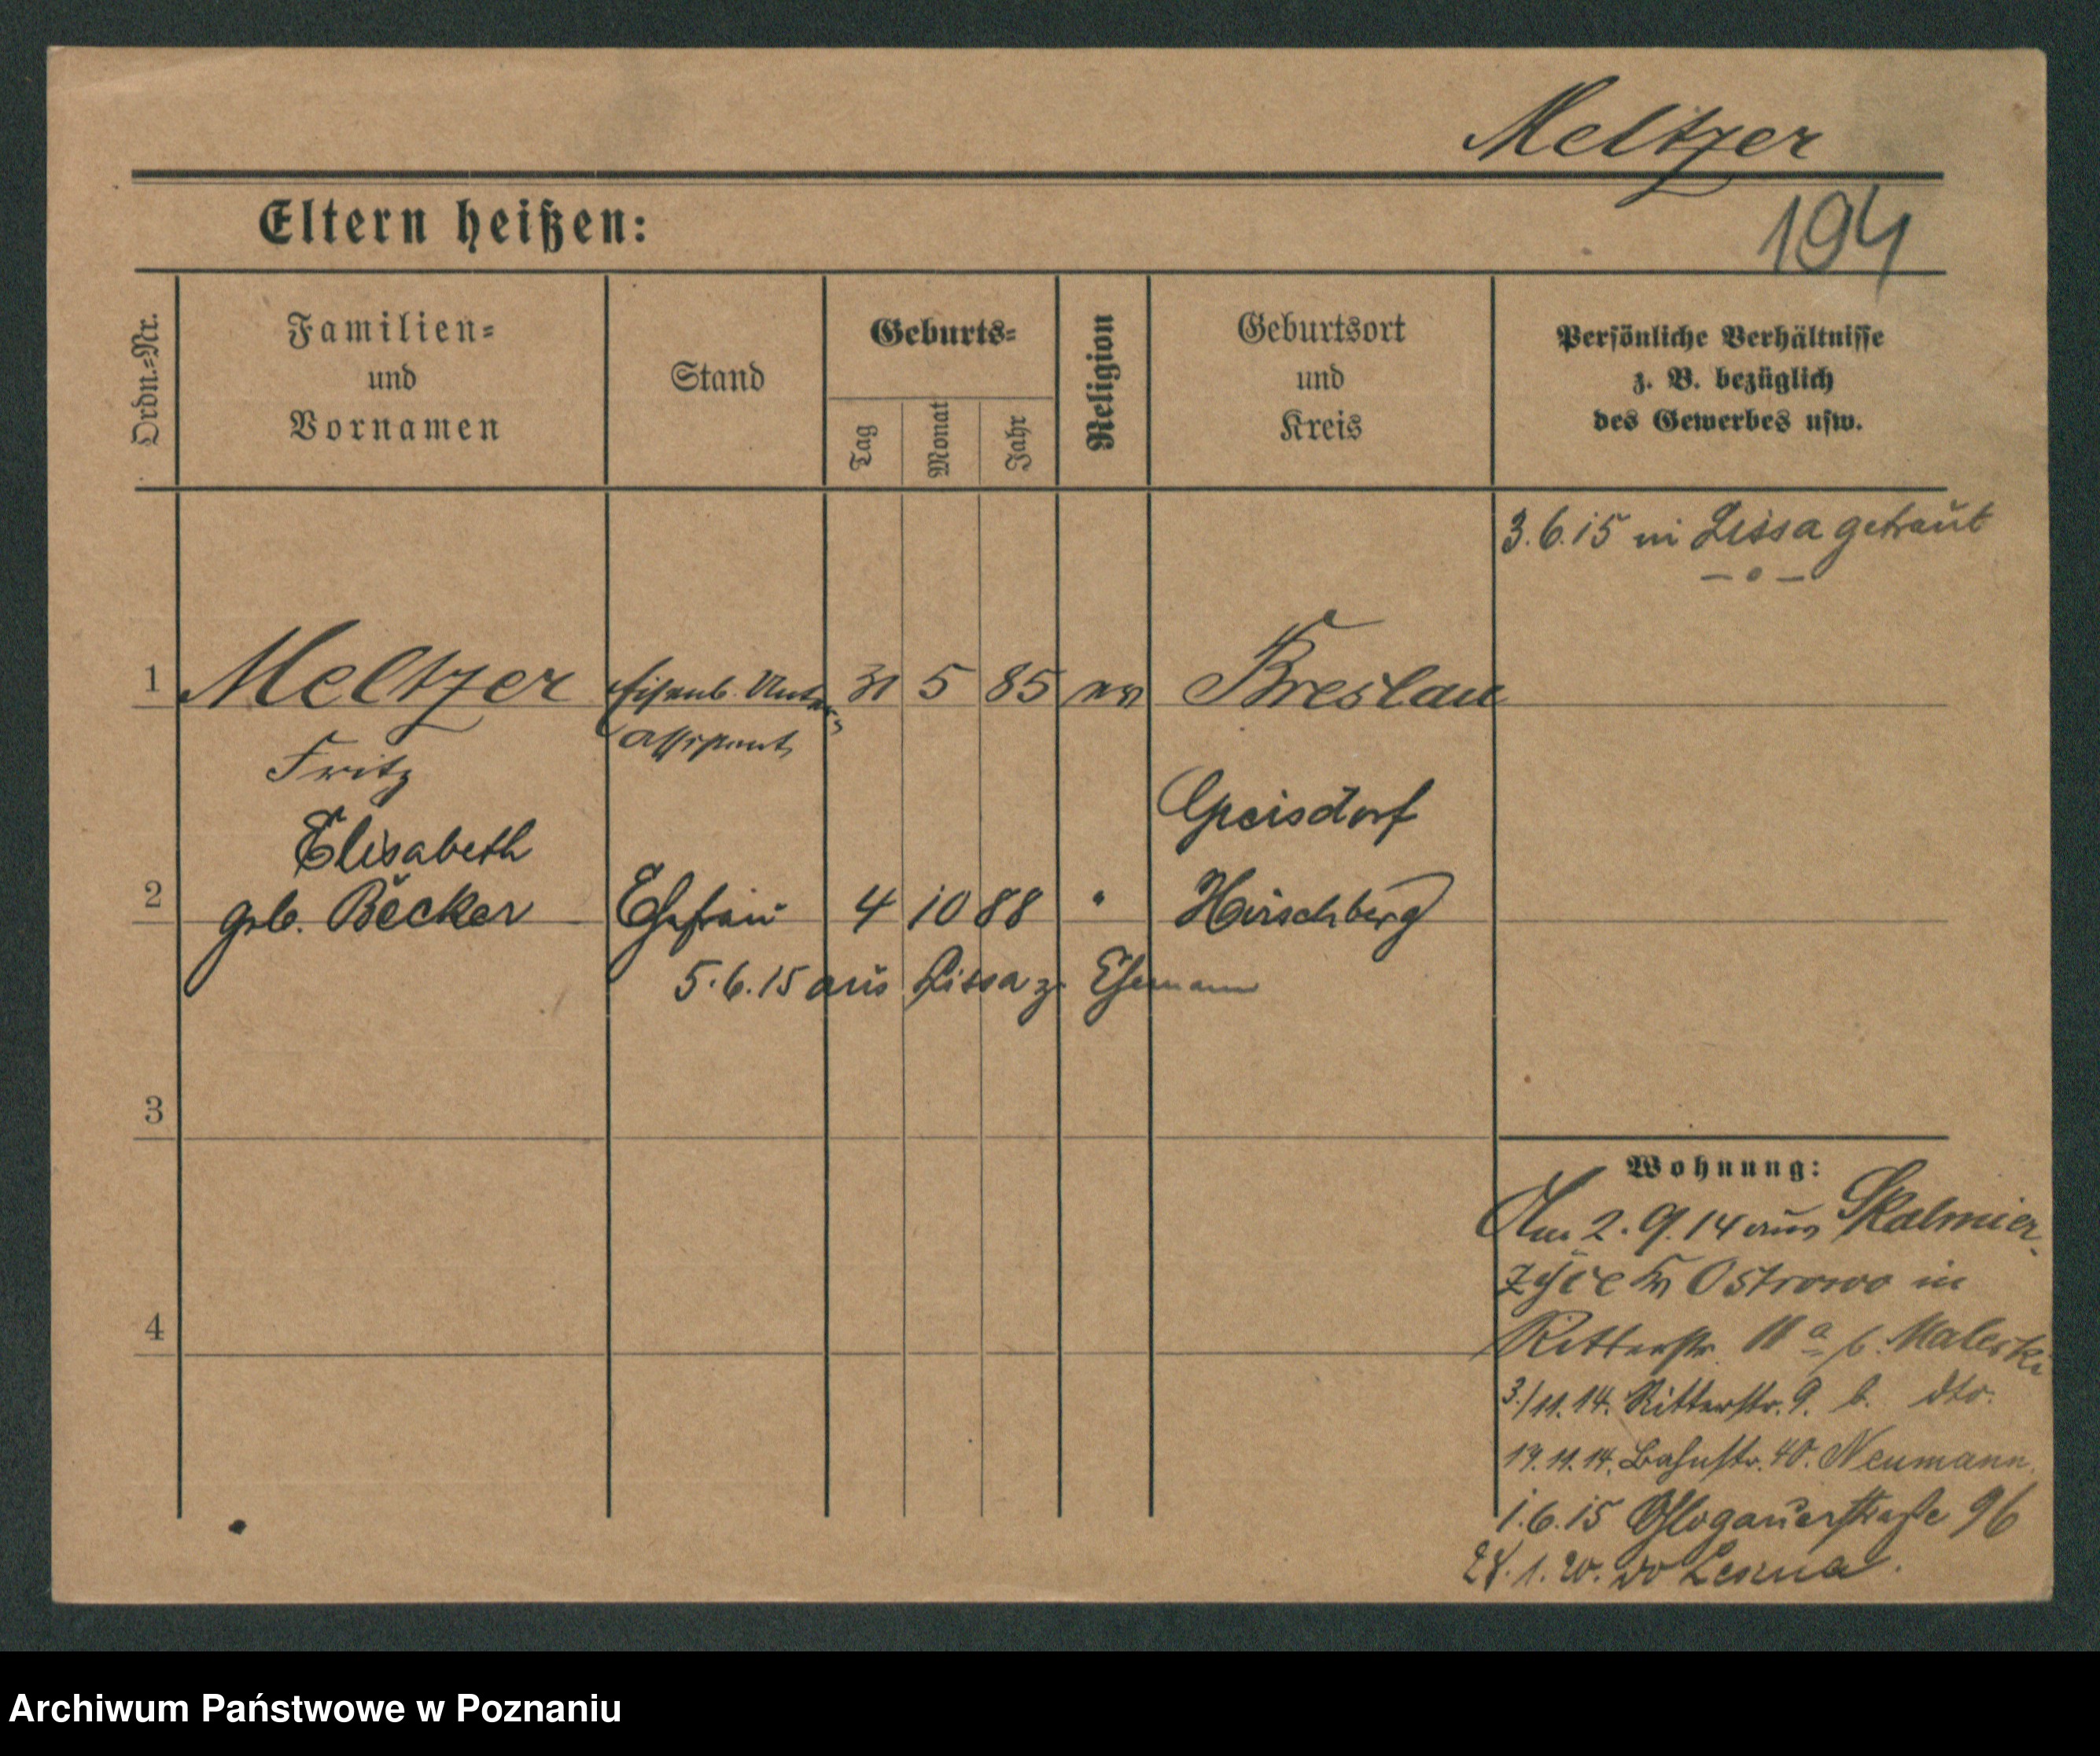 Meltzer
194
Eltern heißen:
Ordn.=Nr.
Familien=
und
Vornamen
Stand
Geburts=
Tag
Monat
Jahr
Religion
Geburtsort
und
Kreis
Persönliche Verhältnisse
z. B. bezüglich
des Gewerbes usw.
3.6.15 in Lissa getraut
1 Meltzer Eisenb. Unter= 31 5 85 ev Breslau
Fritz
assistent
Elisabeth
2 geb. Becker Ehefrau 4 10 88 " Hirschberg
5.6.15 aus Lissa z. Ehemann
3
Wohnung:
Am 2.9.14 aus Skalmier-
zyce Kr Ostrowo in
4
Ritterstr. 11a b. Maleski
3./11.14. Ritterstr. 9. b. dto.
19.11.14. Bahnstr. 40. Neumann.
1.6.15 Glogauerstraße 96
28.1.20. do Leszna.
Archiwum Państwowe w Poznaniu